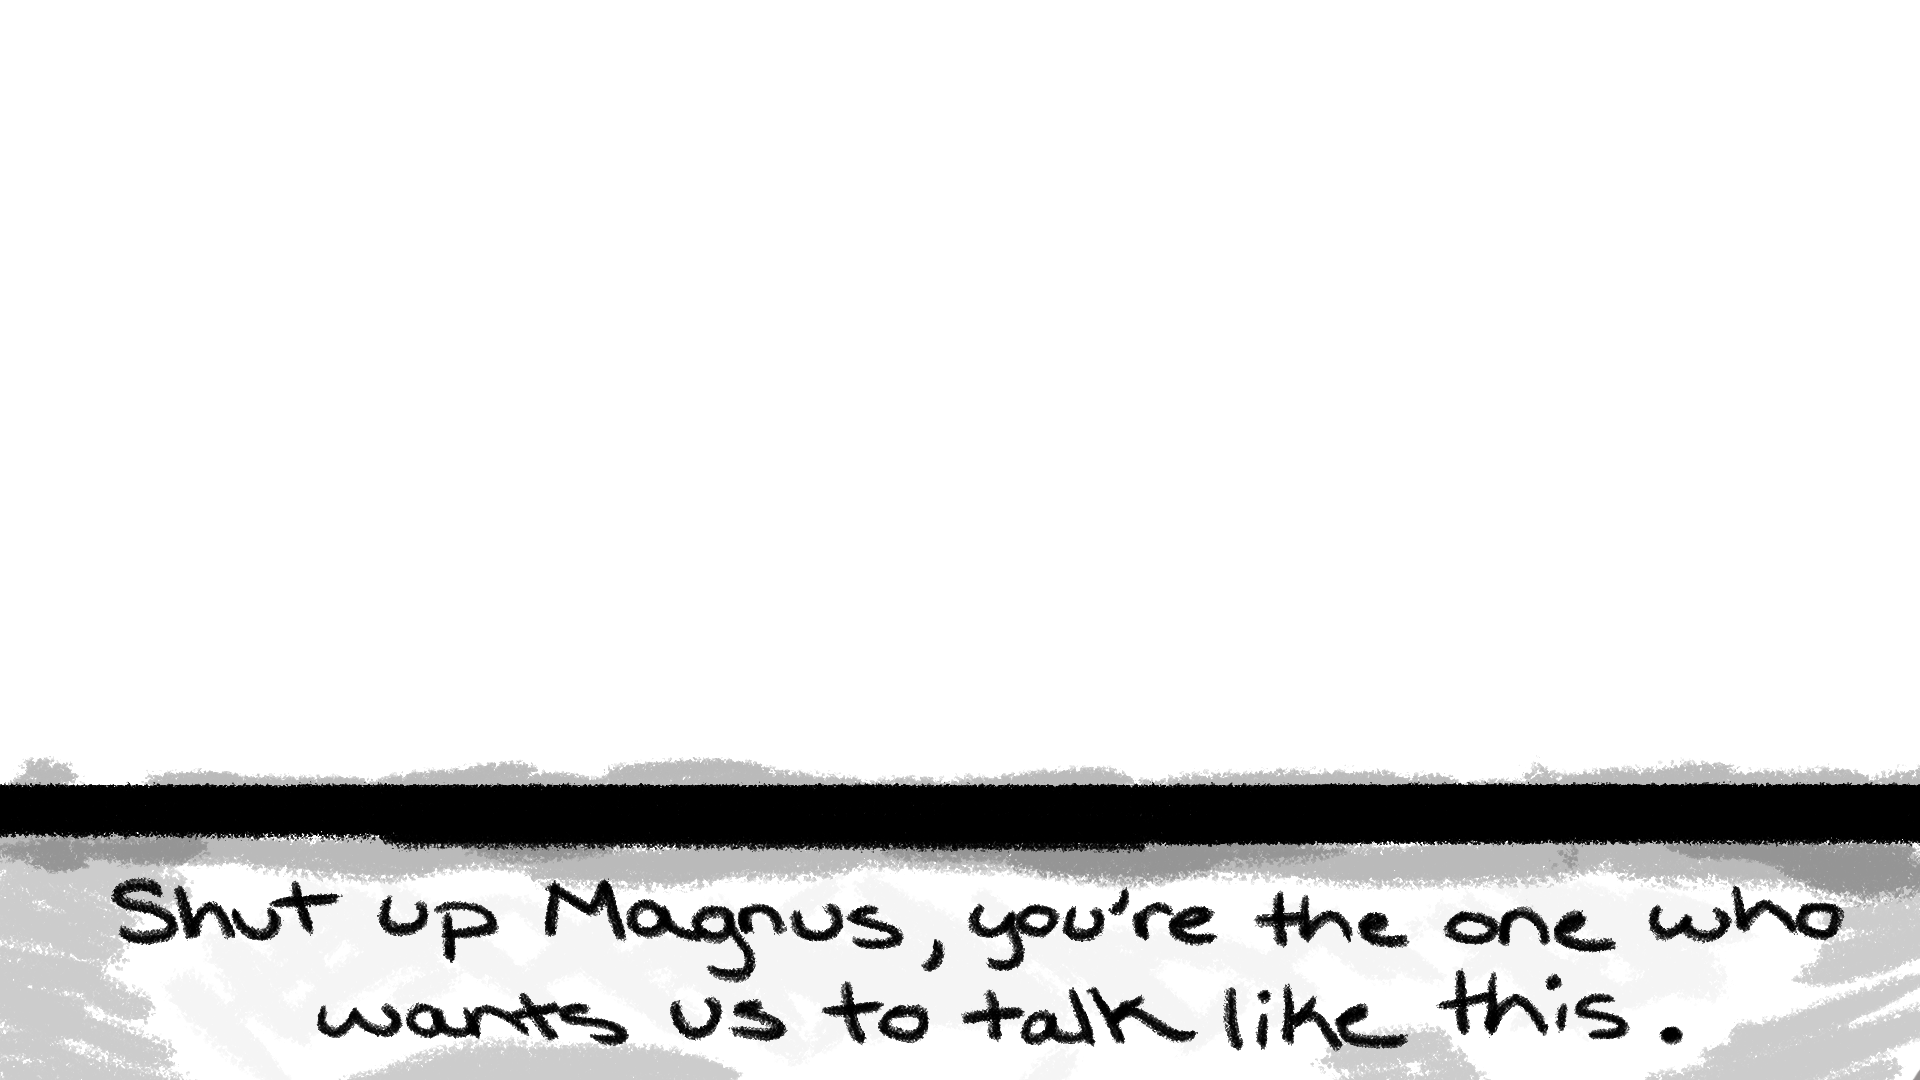 Shut up Magnus, you're the one who
wants us to talk like this.